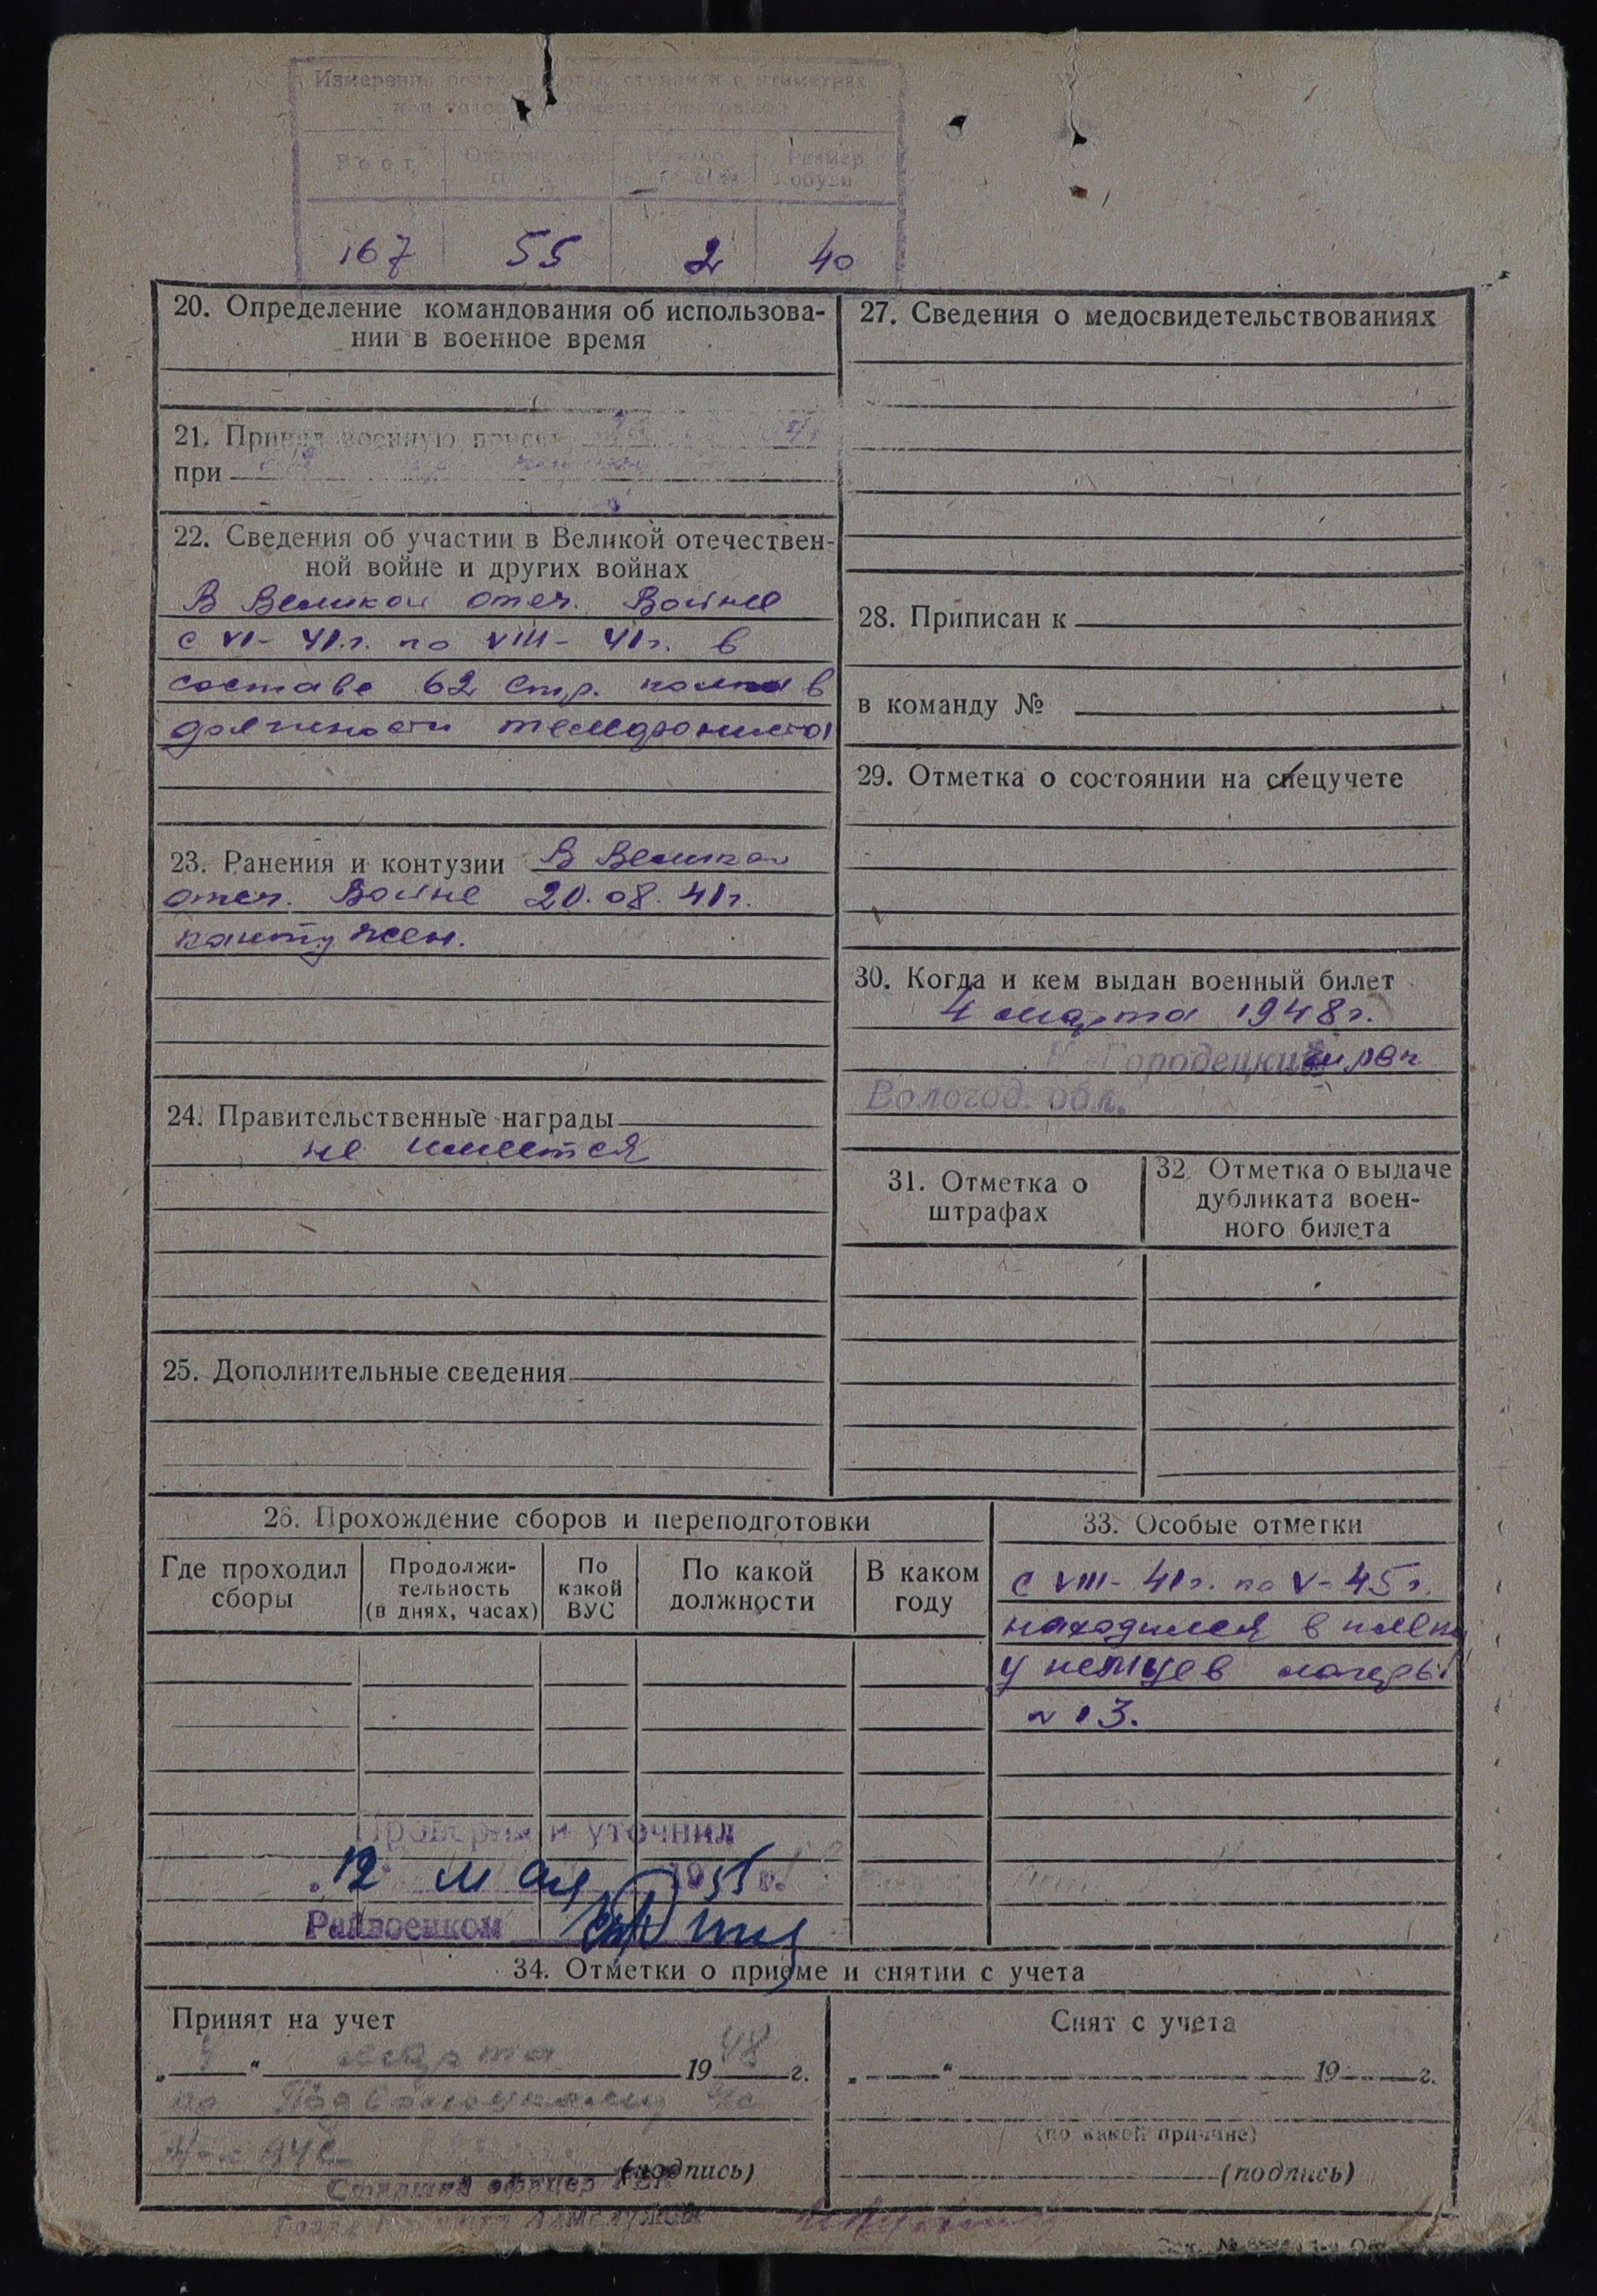 Рост
Размер обуви
167 55 2 40
20. Определение командования об использова-
нии в военное время
21. Принял военную
при
22. Сведения об участии в Великой отечествен-
ной войне и других войнах
В Великой отеч. Войне
с VI- 41.г. по VIII- 41г. в
составе 62 Стр. полка в
должности телефониста
23. Ранения и контузии В Великой
отеч. Войне 20.08.41г.
контужен.
24. Правительственные награды
не имеется
25. Дополнительные сведения
27. Сведения о медосвидетельствованиях
28. Приписан к
в команду №
29. Отметка о состоянии на спецучете
30. Когда и кем выдан военный билет
4 марта 1948г.
Городецким РВК
Вологод. обл.
31. Отметка о
штрафах
32. Отметка о выдаче
дубликата воен-
ного билета
26. Прохождение сборов и переподготовки
Где проходил
сборы
Продолжи-
тельность
(в днях, часах)
По
какой
ВУС
По какой
должности
В каком
году
33. Особые отметки
с VIII- 41г. по V- 45г.
находился в плену
у немцев лагерь
Проверил и уточнил
12 мая 1955 г.
Райвоенком
34. Отметки о приеме и снятии с учета
Принят на учет
„ 4 “ марта 1948 г.
по
(подпись)
Старший офицер
Снят с учета
„ “ 19 г.
(по какой причине)
(подпись)